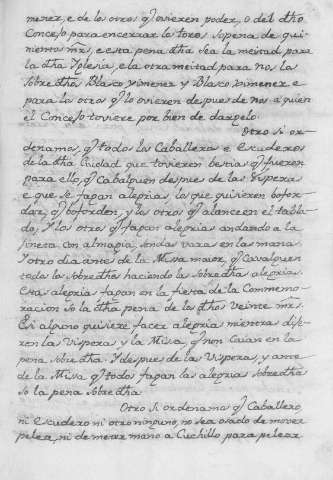 menez, e de los otros q̃ ovieren poder, o del dh̃o
Concejo para encerrar los toros sopena de qui-
nientos mrs, e esta pena dh̃a sea la meitad para
la dh̃a Yglesia, e la otra meitad para nos los
sobredh̃os Blasco Ximenez y Blasco Ximenez e
para los otros q̃ lo ovieren despues de nos a quien
el Concejo toviere por bien de darxelo.
Otro si or-
denamos, q̃ todos los Caballeros e Escuderos
de la dh̃a Ciudad que tovieren bestias q̃ fueren
para ello, q̃ Cabalguen despues de las Visperas
e que se fagan alegrias, los que quisieren bofor-
dar, q̃ boforden, y los otros q̃ alanceen el tabla-
do, y los otros q̃ fagan alegrias andando a la
gineta con almagia, sendas varas en las manos
Y otro dia antes de la Misa maior, q̃ Cavalguen
todos los sobredh̃os haciendo las sobredh̃as alegrias.
Esta alegria fagan en la fiesta de la Commemo-
racion so la dh̃a pena de los dh̃os veinte mrs.
E si alguno quisiere facer alegria mientras dije-
ren las Visperas y la Misa, q̃ non caian en la
pena sobredh̃a. Y despues de las Visperas, y ante
de la Misa q̃ todos fagan las alegrias sobredh̃as
so la pena sobredh̃a
Otro si ordenamos q̃ Caballero,
ni Escudero ni otro ninguno, no sea osado de mover
pelea, ni de meter mano a Cuchillo para pelear.